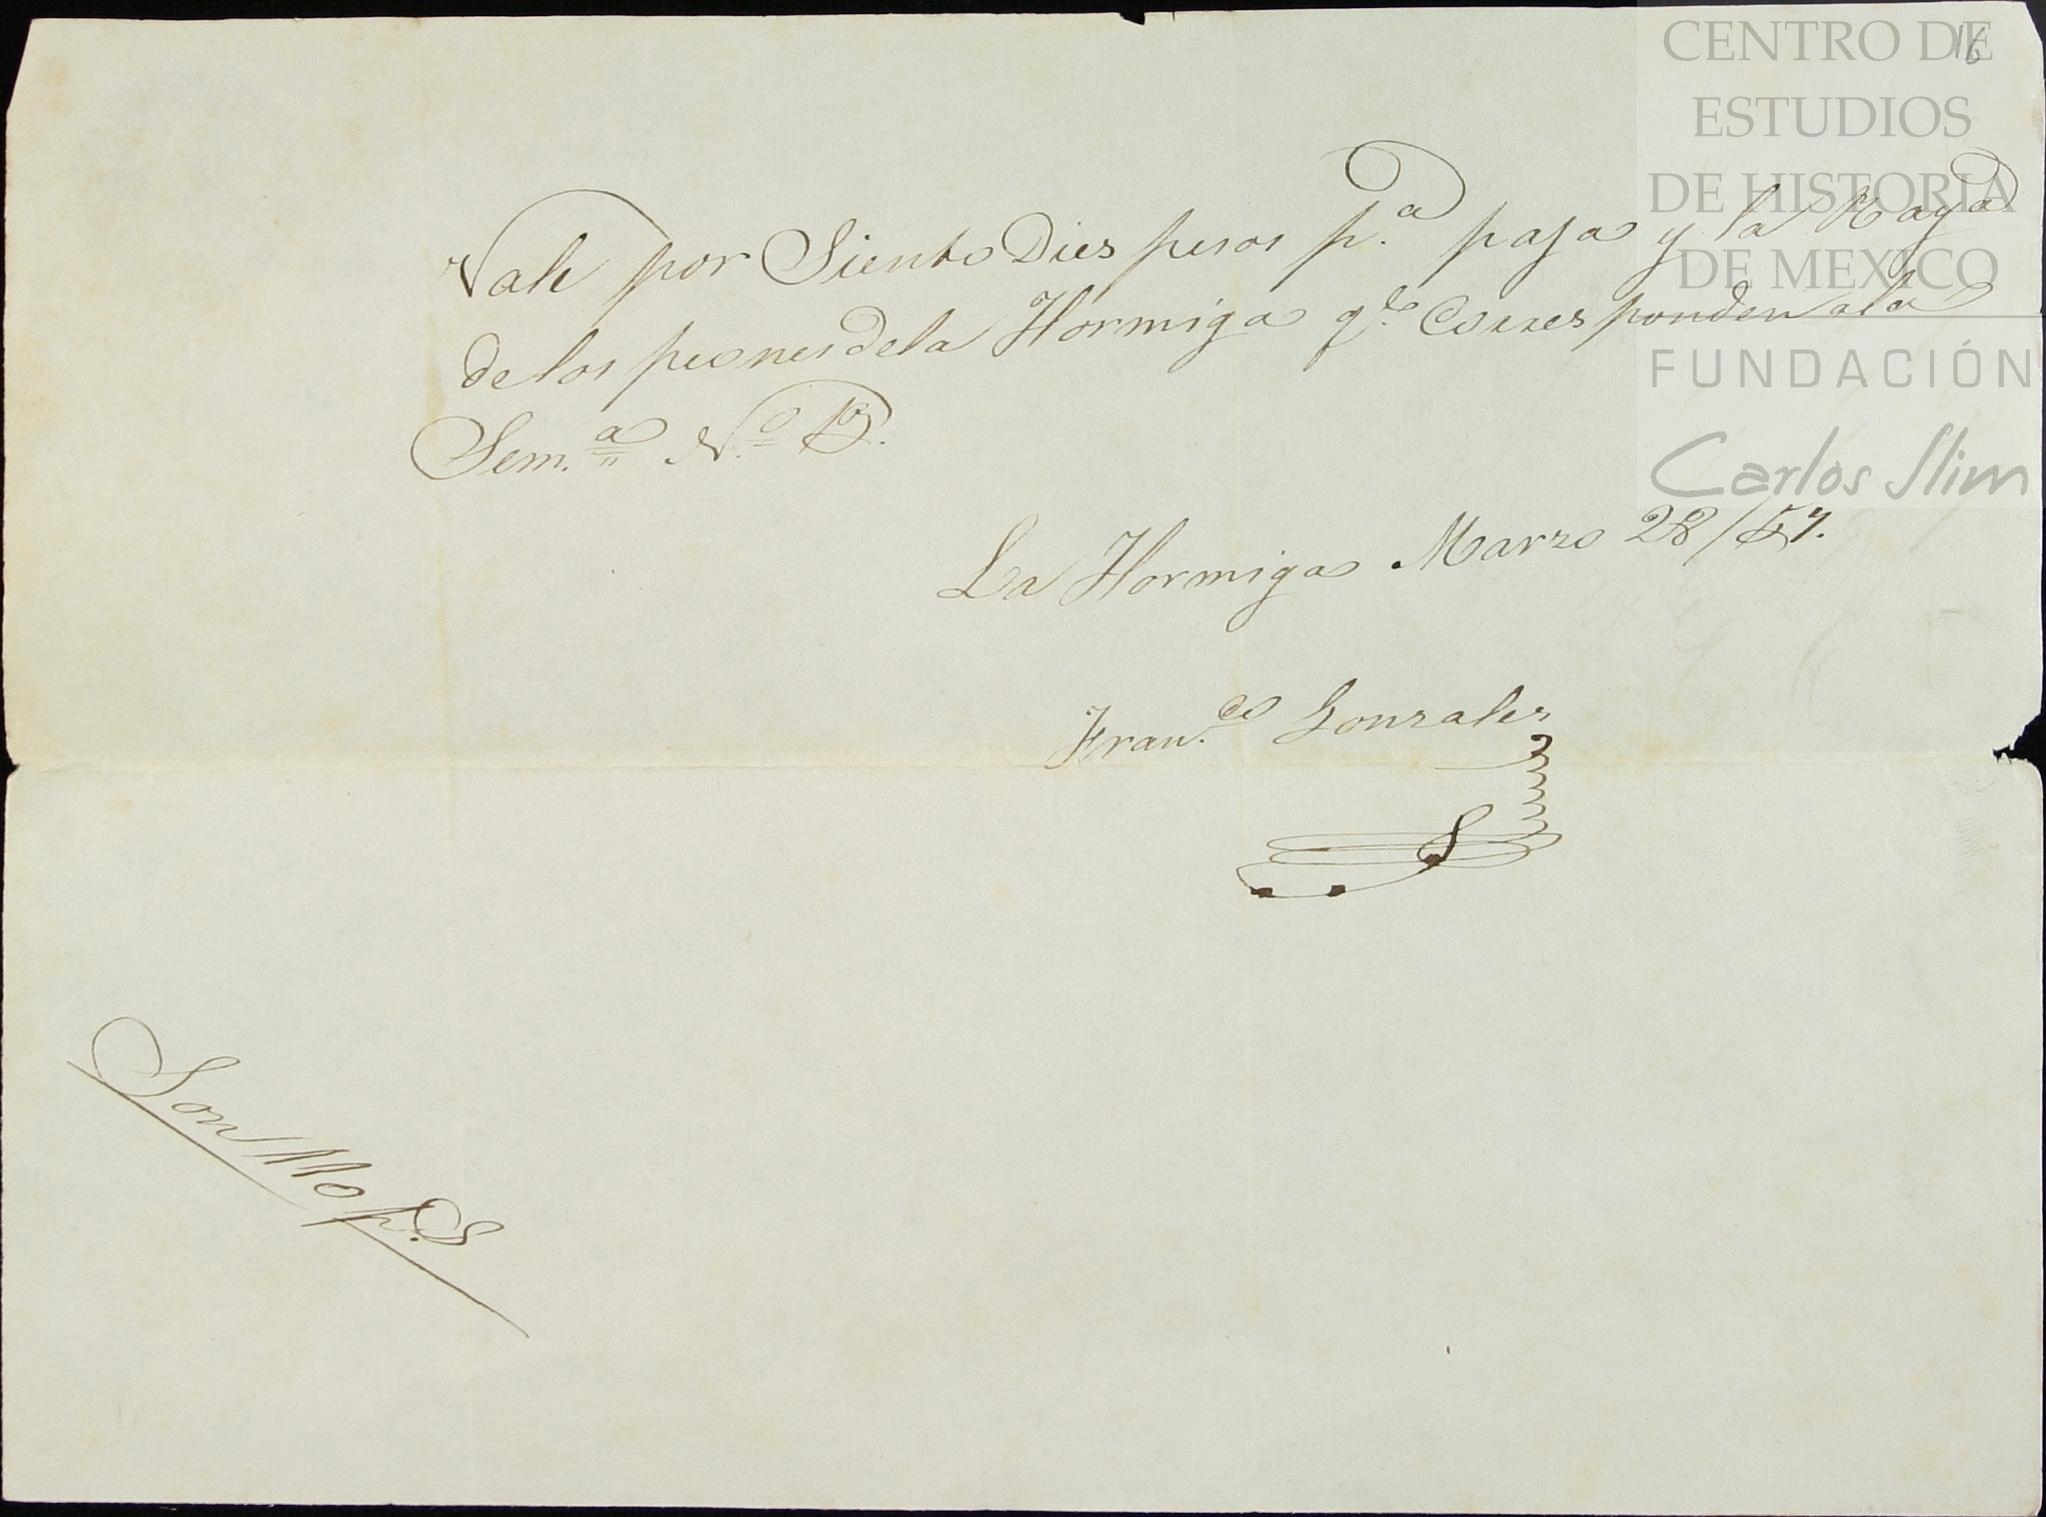 16
CENTRO DE
ESTUDIOS
DE HISTORIA
DE MEXICO
FUNDACIÓN
Carlos Slim
Vale por Siento Dies pesos p.a paja y la Raya
de los peones de la Hormiga q.e Corresponden a la
Sem.a N.o 13.
La Hormiga Marzo 28/57.
Fran.co Gonzales
Son 110 p.s